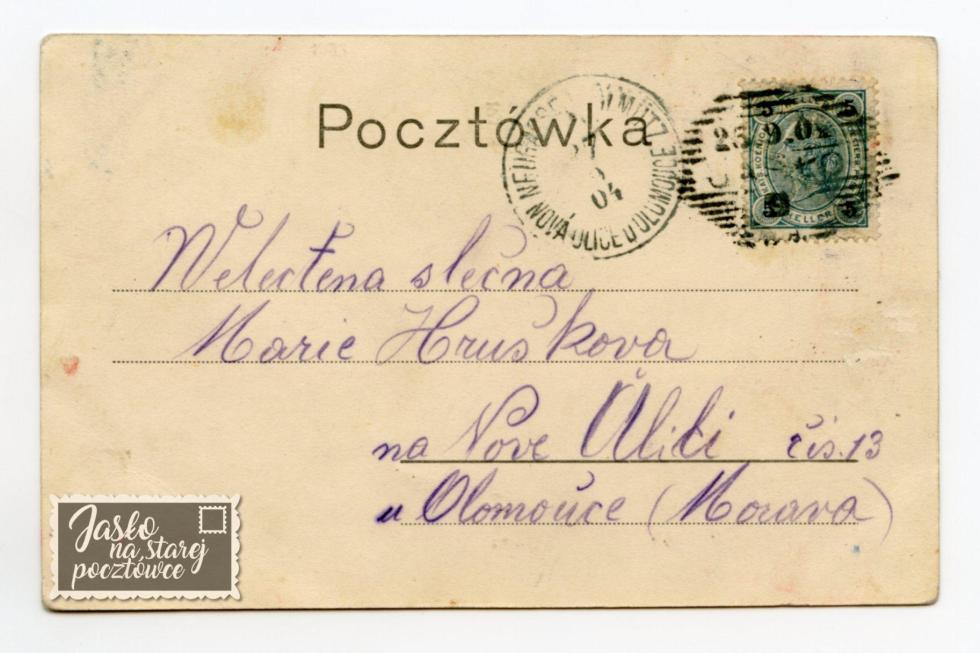 Pocztówka
NEUGASSE OLMÜTZ
NOVÁ ULICE U OLOMOUCE
04
5 5
23 9 04
5 HELLER 5
Welectěna slečna
Marie Hrušková
na Nove Ulici čís. 13
u Olomouce (Morava)
Jasło
na starej
pocztówce